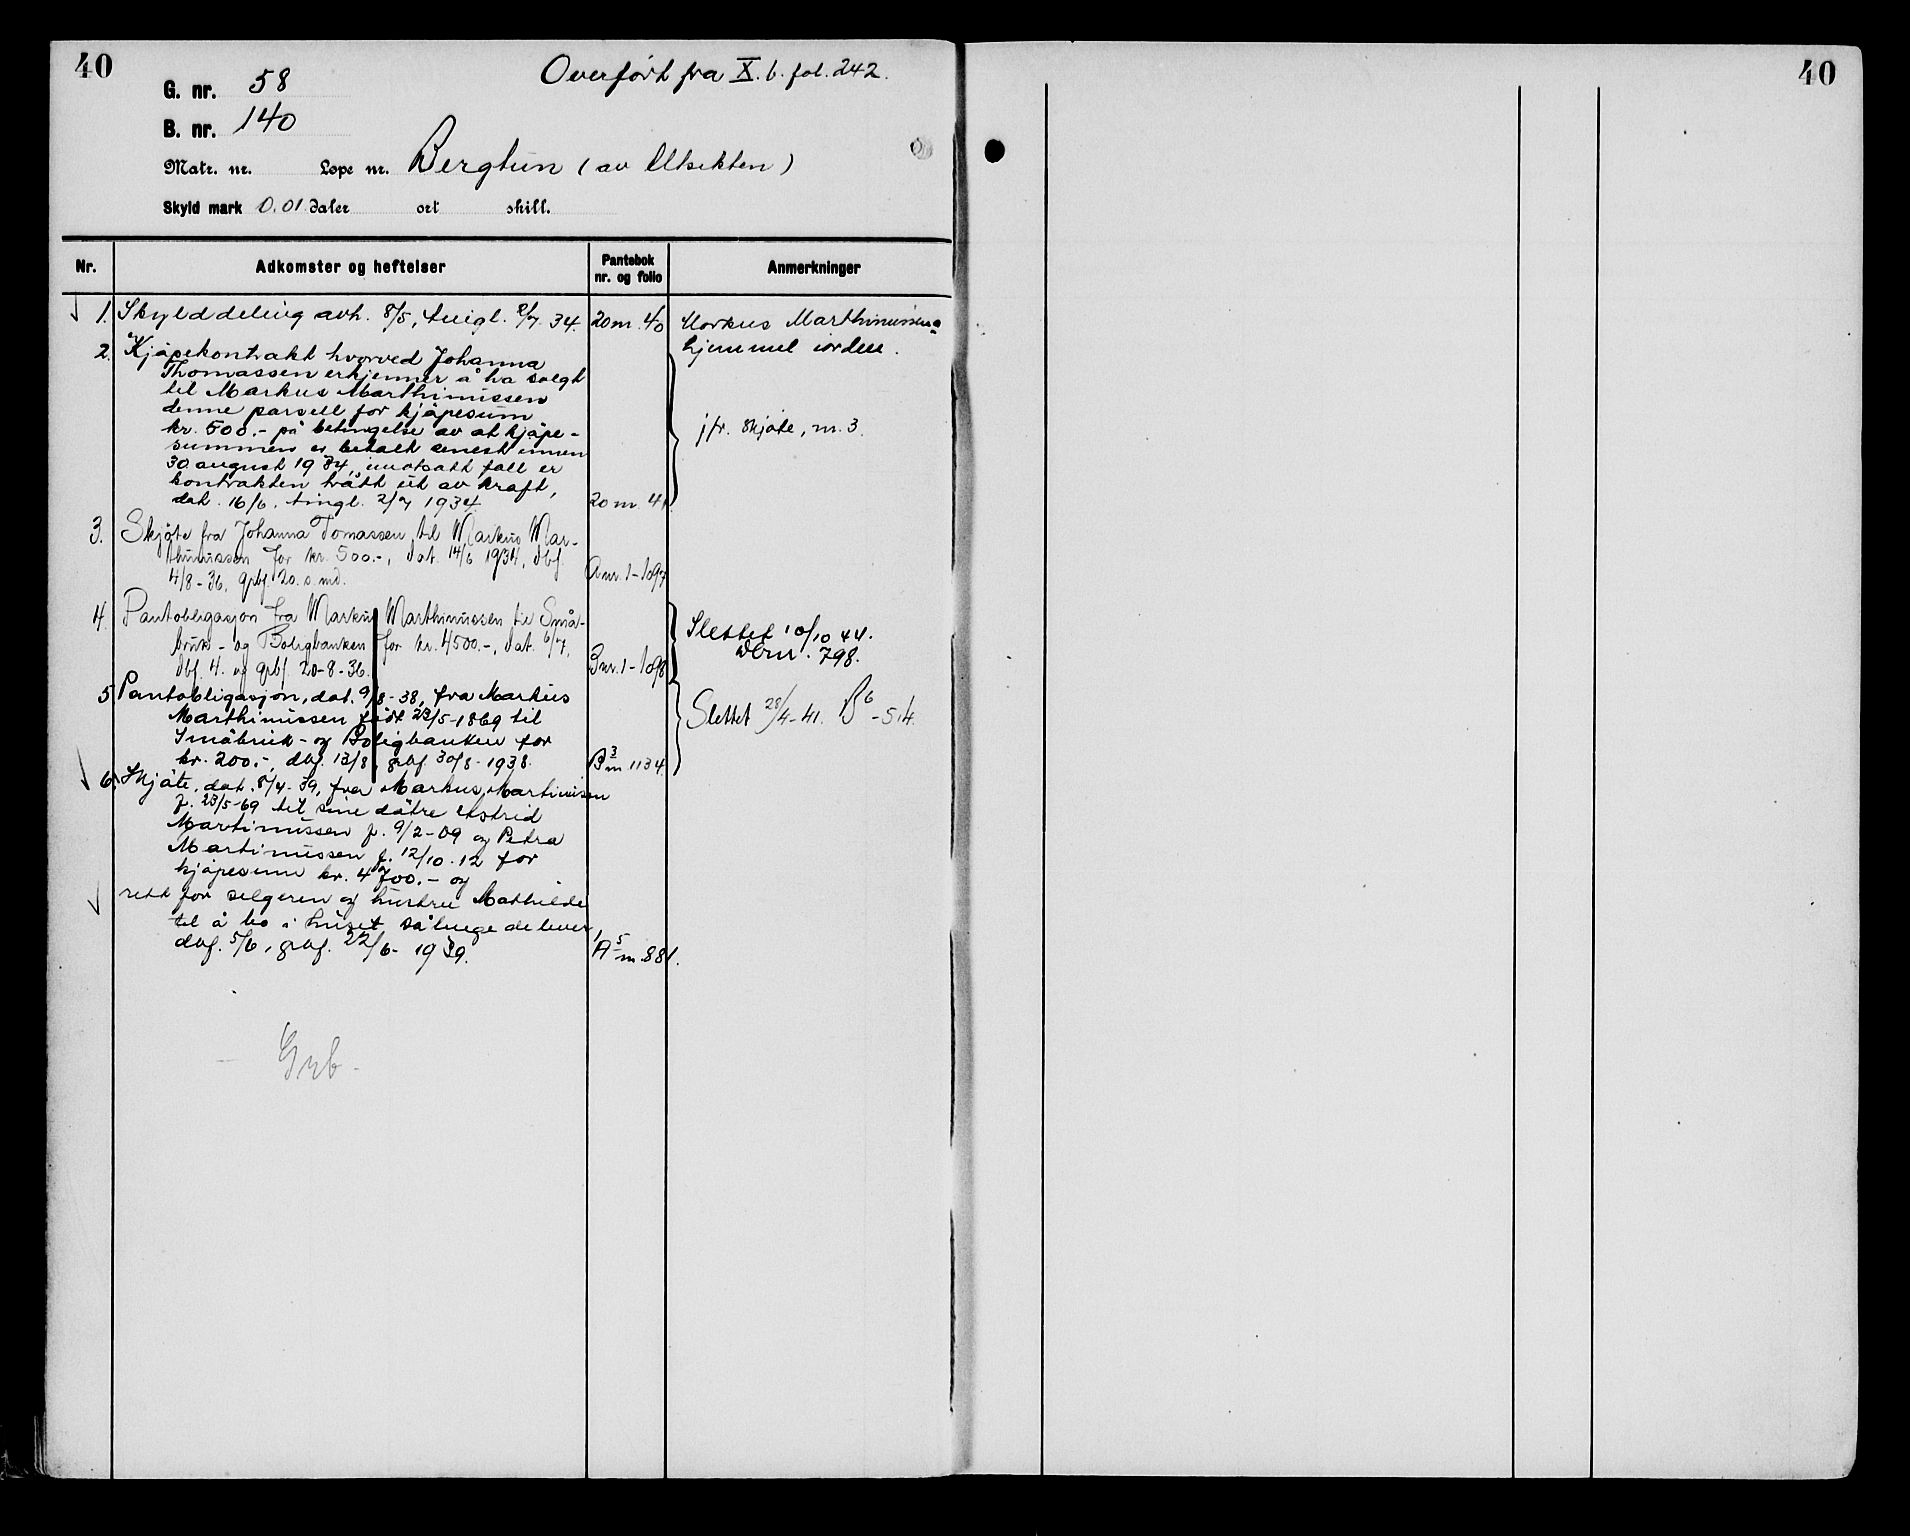 40
Overført fra X. b. fol. 242.
40
G. nr. 58
B. nr. 140
Matr. nr. Løpe nr. Bergtun (av Utsikten)
Skyld mark 0.01 daler ort skill.
Nr. Adkomster og heftelser Pantebok nr. og folio Anmerkninger
1. Skylddeling avh. 8/5, tingl. 2/7 34. 20 nr. 40 Markus Marthinussens
hjemmel iorden.
2. Kjøpekontrakt hvorved Johanna
Thomassen erkjenner å ha solgt
til Markus Marthinussen
denne parsell for kjøpesum
kr. 500.- på betingelse av at kjøpe-
summen er betalt senest innen
30 august 1934, i motsatt fall er
kontrakten trått ut av kraft,
dat. 16/6, tingl. 2/7 1934. 20 nr. 41.
jfr. skjøte, nr. 3.
3. Skjøte fra Johanna Tomassen til Markus Mar-
thinussen for kr. 500.-, dat. 14/6 1934, dbf.
4/8-36, gpbf. 20. s. md. A nr. 1-1097
4. Pantobligasjon fra Markus Marthinussen til Små-
bruk- og Boligbanken for kr. 4500.-, dat. 6/7,
dbf. 4. og gpbf. 20-8-36. B nr. 1-1098
Slettet 10/10 44.
Dbnr. 798.
5 Pantobligasjon, dat. 9/8-38, fra Markus
Marthinussen født 23/5-1869 til
Småbruk- og Boligbanken for
kr. 200.-, dbf. 13/8, gpbf. 30/8-1938. B 3 nr. 1134.
Slettet 28/4-41. B 6 -514.
6. Skjøte, dat. 8/4-39, fra Markus Martinusen
f. 23/5-69 til sine døtre Astrid
Martinussen f. 9/2-09 og Petra
Martinussen f. 12/10-12 for
kjøpesum kr. 4700.- og
rett for selgeren og hustru Mathilde
til å bo i huset så lenge de lever,
dbf. 5/6, gpbf. 22/6-1939. A 5 nr. 881.